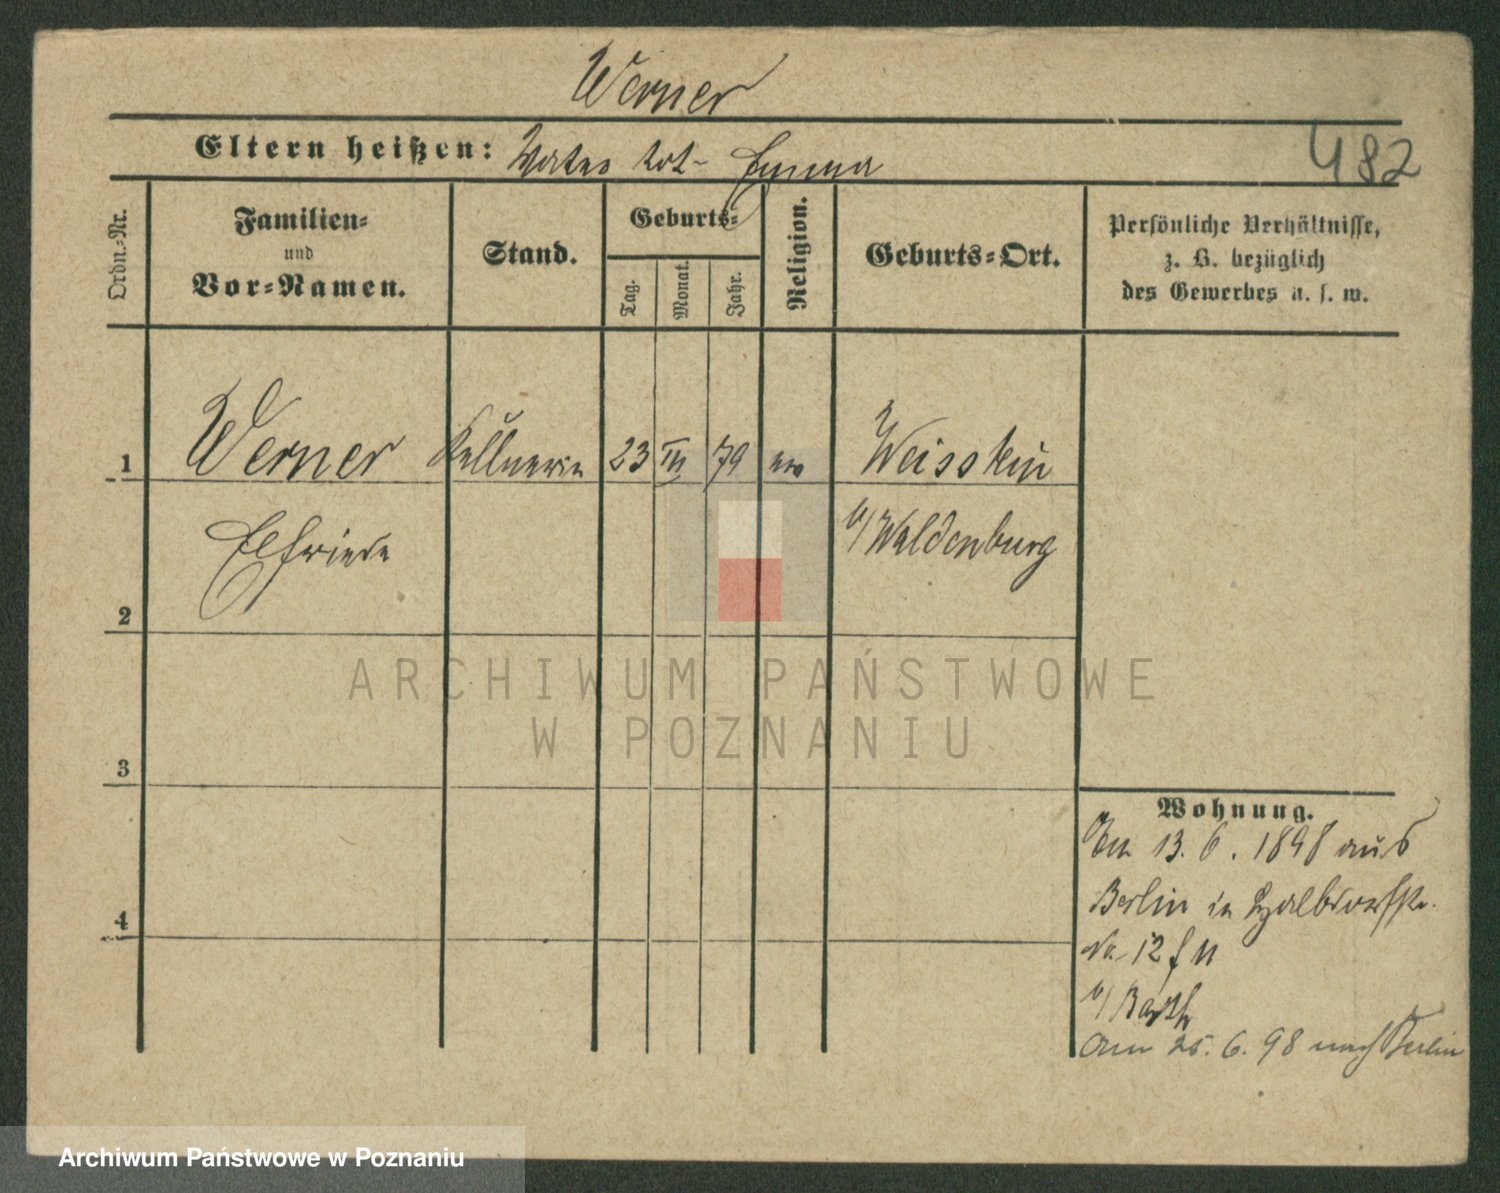 Werner
Eltern heißen: Vater tot Emma
482
Ordn.-Nr.
Familien-
und
Vor-Namen.
Stand.
Geburts-
Tag.
Monat.
Jahr.
Religion.
Geburts-Ort.
Persönliche Verhältnisse,
z. B. bezüglich
des Gewerbes u. s. w.
1 Werner Kellnerin 23 III 79 ev Weisstein
Elfriede b/Waldenburg
2
ARCHIWUM PAŃSTWOWE
W POZNANIU
3
Wohnung.
Am 13. 6. 1898 aus
Berlin in Halbdorfstr.
No 12
4
b/Barth
Am 25. 6. 98 nach Berlin
Archiwum Państwowe w Poznaniu